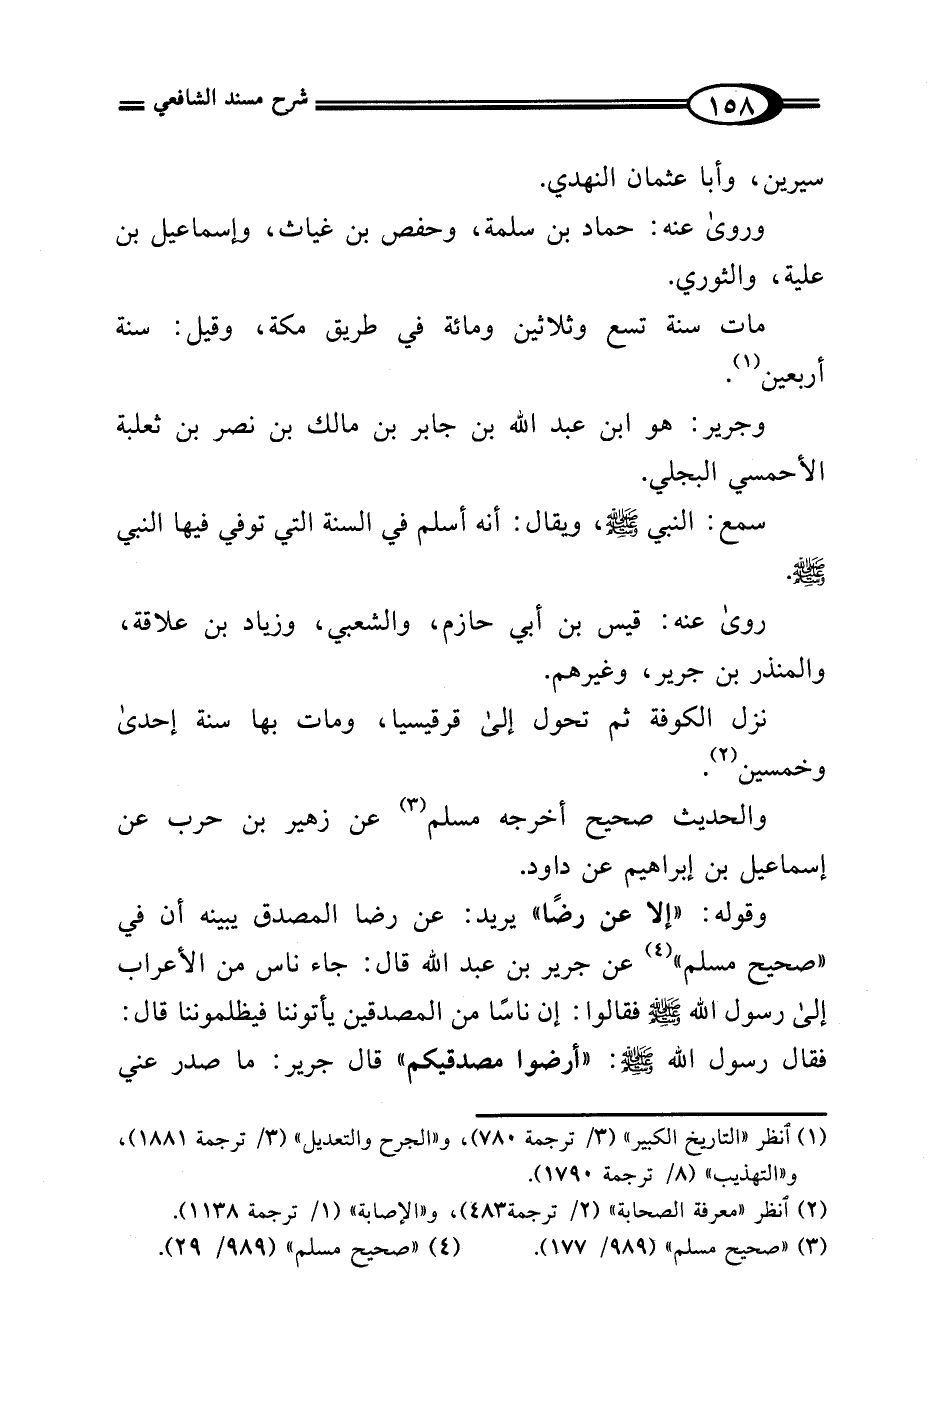 ١٥٨ شرح مسند الشافعي
سيرين، وأبا عثمان النهدي.
وروىٰ عنه: حماد بن سلمة، وحفص بن غياث، وإسماعيل بن
علية، والثوري.
مات سنة تسع وثلاثين ومائة في طريق مكة، وقيل: سنة
أربعين(١).
وجرير: هو ابن عبد الله بن جابر بن مالك بن نصر بن ثعلبة
الأحمسي البجلي.
سمع: النبي ﷺ، ويقال: أنه أسلم في السنة التي توفي فيها النبي
ﷺ.
روىٰ عنه: قيس بن أبي حازم، والشعبي، وزياد بن علاقة،
والمنذر بن جرير، وغيرهم.
نزل الكوفة ثم تحول إلىٰ قرقيسيا، ومات بها سنة إحدىٰ
وخمسين(٢).
والحديث صحيح أخرجه مسلم(٣) عن زهير بن حرب عن
إسماعيل بن إبراهيم عن داود.
وقوله: «إلا عن رضًا» يريد: عن رضا المصدق يبينه أن في
«صحيح مسلم»(٤) عن جرير بن عبد الله قال: جاء ناس من الأعراب
إلىٰ رسول الله ﷺ فقالوا: إن ناسًا من المصدقين يأتوننا فيظلموننا قال:
فقال رسول الله ﷺ: «أرضوا مصدقيكم» قال جرير: ما صدر عني
(١) ٱنظر «التاريخ الكبير» (٣/ ترجمة ٧٨٠)، و«الجرح والتعديل» (٣/ ترجمة ١٨٨١)،
و«التهذيب» (٨/ ترجمة ١٧٩٠).
(٢) ٱنظر «معرفة الصحابة» (٢/ ترجمة٤٨٣)، و«الإصابة» (١/ ترجمة ١١٣٨).
(٣) «صحيح مسلم» (٩٨٩/ ١٧٧). (٤) «صحيح مسلم» (٩٨٩/ ٢٩).